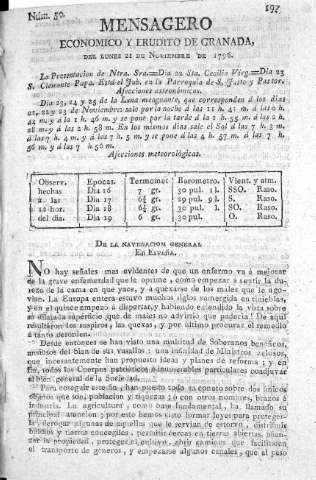 Núm. 50. 197
MENSAGERO
ECONOMICO Y ERUDITO DE GRANADA,
DEL LUNES 21 DE NOVIEMBRE DE 1796.
La Presentacion de Ntra. Sra.=Dia 22 Sta. Cecilia Virg.=Dia 23
S. Clemente Papa. Está el Jub. en la Parroquia de S. Justo y Pastor.
Afecciones astronómicas.
Dia 23, 24 y 25 de la Luna menguante, que corresponden á los dias
21, 22 y 23 de Noviembre sale por la noche á las 11 h. 41 m. á las 0 h.
44 m. y á la 1 h. 46 m. y se pone por la tarde á la 1 h. 55 m. á las 2 h.
28 m. y á las 2 h. 58 m. En los mismos dias sale el Sol á las 7 h. 3 m.
á las 7 h. 4 m. y á las 7 h. 5 m. y se pone á las 4 h. 57 m. á las 7 h.
56 m. y á las 7 h. 55 m.
Afecciones meteorológicas.
Observ. Epocas. Termomet Barometro. Vient. y atm.
hechas Dia 16 7 gr. 30 pul. 1 l. SSO. Raso.
á las Dia 17 6¾ gr. 29 pul. 9 l. S. Raso.
12 hor. Dia 18 6¾ gr. 30 pul. 1 l. SO. Raso.
del dia. Dia 19 6 gr. 30 pul. O. Raso.
DE LA NAVEGACION GENERAL
En España.
No hay señales mas evidentes de que un enfermo va á mejorar
de la grave enfermedad que le oprime, como empezar á sentir la du-
reza de la cama en que yace, y á quejarse de los males que le ago-
vian. La Europa entera estuvo muchos siglos sumergida en tinieblas,
y en el quince empezó á dispertar, y habiendo extendido la vista sobre
su dilatada superficie que de males no advirtió que padecia! De aquí
resultaron los suspiros, las quexas, y por último procurar el remedio
á tanto desorden.
Desde entonces se han visto una multitud de Soberanos benéficos,
ansiosos del bien de sus vasallos: una infinidad de Ministros zelosos,
que incesantemente han propuesto ideas y planes de reforma; y en
fin, todos los Cuerpos patrióticos é innumerables particulares coadjuvar
al bien general de la Sociedad.
Para conseguir este fin, han puesto todo su conato sobre dos únicos
objetos que son, poblacion y riquezas, ó con otros nombres, brazos é
industria. La agricultura, como base fundamental, ha llamado su
principal atencion; por esto hemos visto formar leyes para proteger-
la, derogar algunas de aquellas que le servian de estorvo, distribuir
baldíos y tierra concegiles, permitir cercas en tierras abiertas, afian-
zar la propiedad, proteger el cultivo, abrir caminos que faciliten
el transporte de géneros, y empezarse algunos canales, que al paso